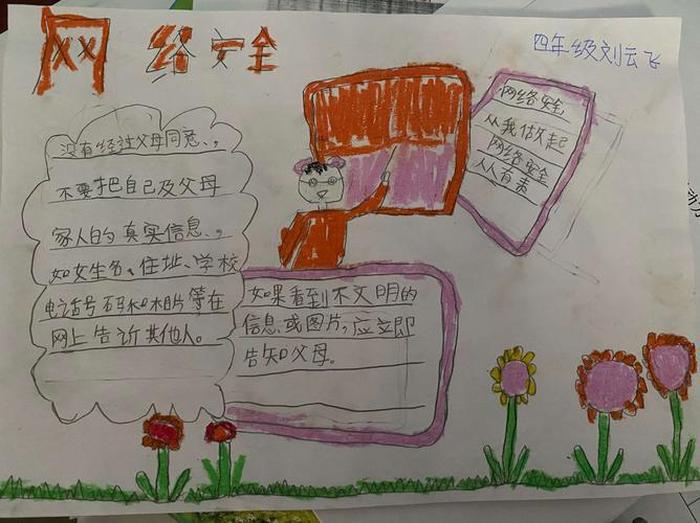 网络安全
四年级刘云飞
没有经过父母同意、,
不要把自己及父母
家人的真实信息、,
如女生名、住址、学校
电话号码和相片等在
网上告诉其他人。
如果看到不文明的
信息或图片,应立即
告知父母。
网络安全,
从我做起
网络安全
人人有责